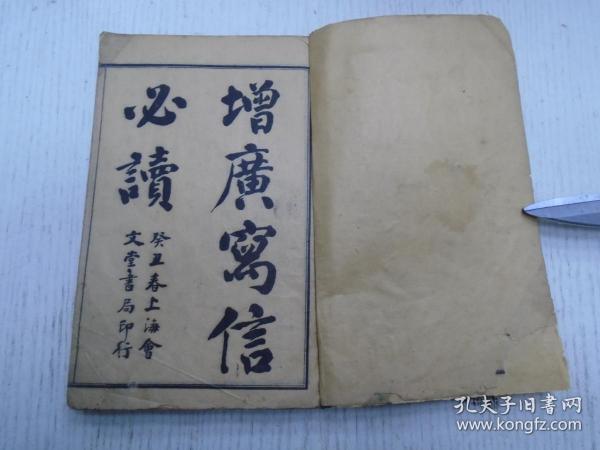 增廣寫信
必讀
癸丑春上海會
文堂書局印行
孔夫子旧书网
www.kongfz.com